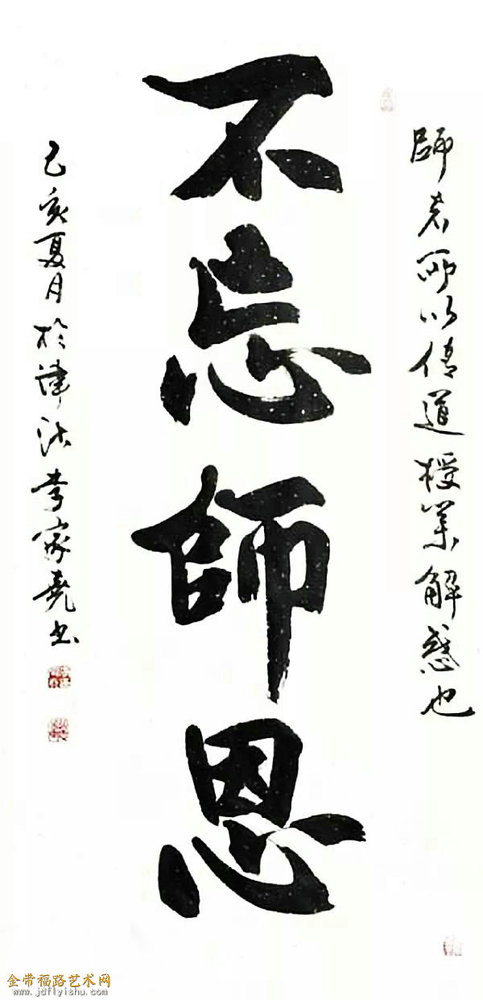 師者所以傳道授業解惑也
不忘師恩
己亥夏月於津沽李家尧书
金带福路艺术网
www.jdflyishu.com